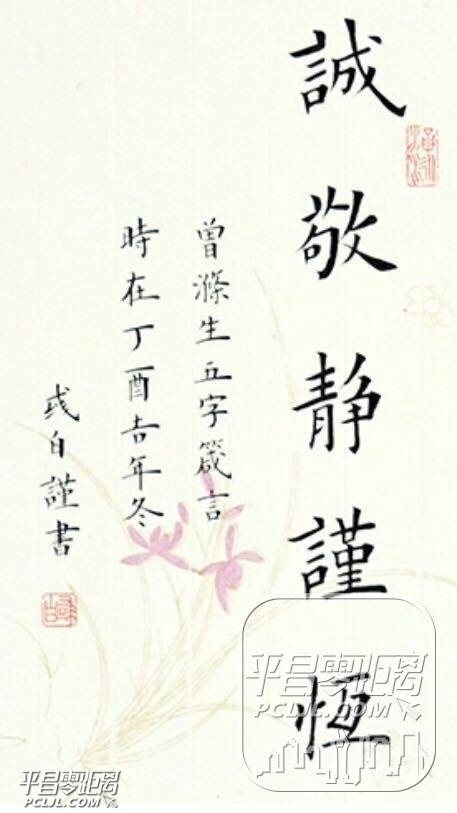 誠敬静謹恆
曾滌生五字箴言
時在丁酉吉年冬
或白謹書
平昌零距离
PCLJL.COM
平昌零距离
PCLJL.COM